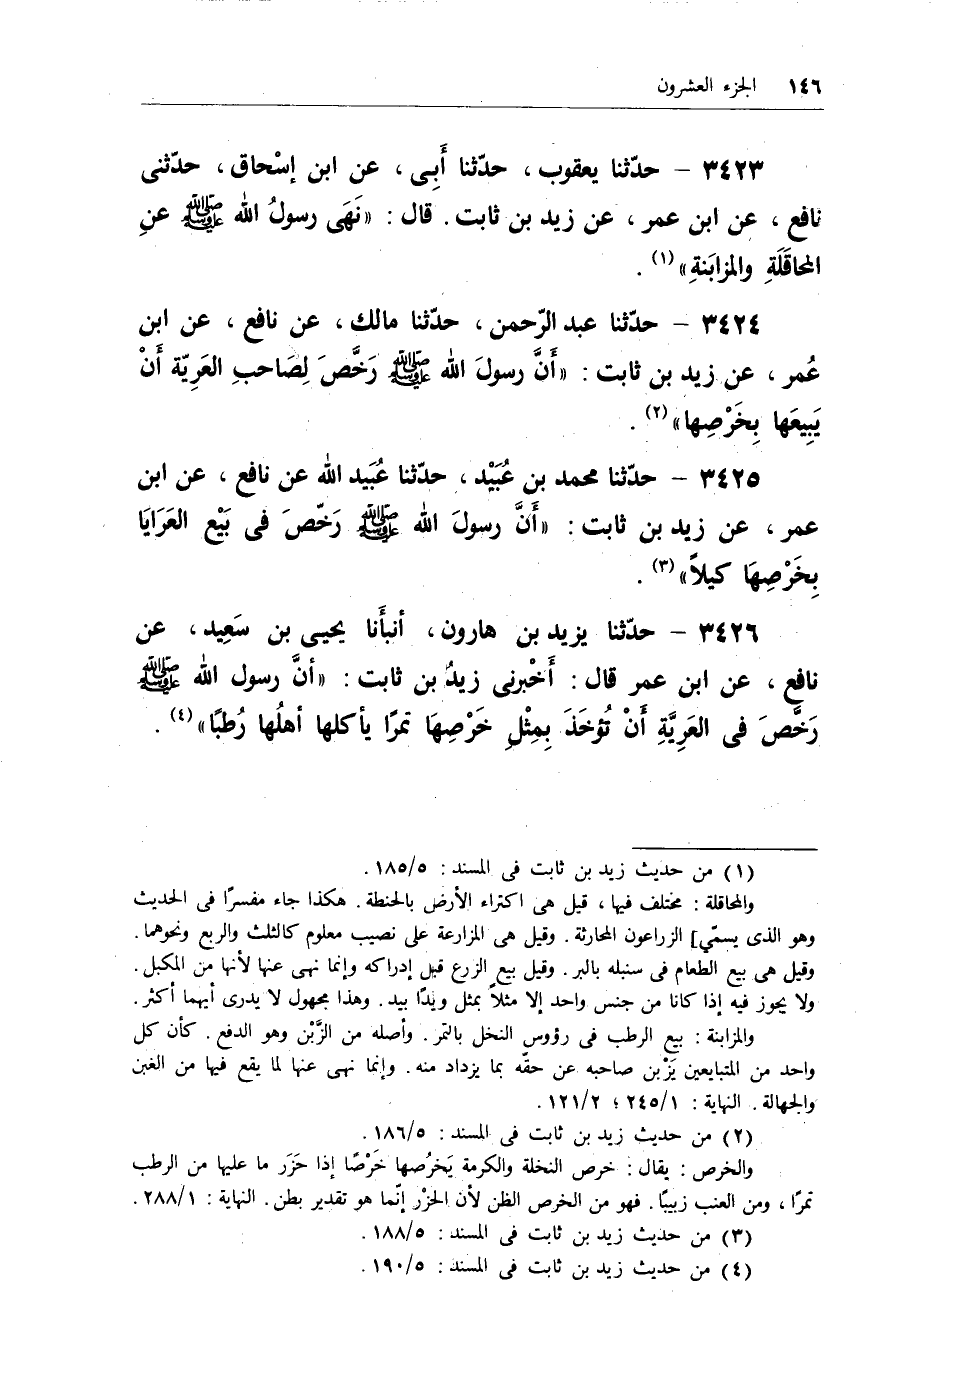 ١٤٦ الجزء العشرون
٣٤٢٣ – حدّثنا يعقوب ، حدّثنا أَبِى ، عن ابن إسْحاق ، حدّثنى
نافع ، عن ابن عمر ، عن زيد بن ثابت . قال : «نَهَى رسولُ الله ﷺ عنِ
المحاقَلَةِ والمزابَنةِ»(١) .
٣٤٢٤ – حدّثنا عبد الرّحمن ، حدّثنا مالك ، عن نافع ، عن ابن
عُمر ، عن زيد بن ثابت : «أَنَّ رسولَ الله ﷺ رَخَّصَ لِصَاحبِ العَرِيّة أَنْ
يَبِيعَها بِخَرْصِها»(٢) .
٣٤٢٥ – حدّثنا محمد بن عُبَيْد ، حدّثنا عُبَيد الله عن نافع ، عن ابن
عمر ، عن زيد بن ثابت : «أَنَّ رسولَ الله ﷺ رَخّصَ فى بَيْع العَرَايَا
بِخَرْصِهَا كيلاً»(٣) .
٣٤٢٦ – حدّثنا يزيد بن هارون ، أنبأَنا يحيى بن سَعِيد ، عن
نافع ، عن ابن عمر قال : أَخْبرنى زيدُ بن ثابت : «أنَّ رسول الله ﷺ
رَخَّصَ فى العَرِيَّةِ أَنْ تُؤخَذَ بِمِثْلِ خَرْصِهَا تمرًا يأكلها أهلُها رُطبًا»(٤) .
(١) من حديث زيد بن ثابت فى المسند : ١٨٥/٥ .
والمحاقلة : مختلف فيها ، قيل هى اكتراء الأرض بالحنطة . هكذا جاء مفسرًا فى الحديث
وهو الذى يسمّي] الزراعون المحارثة . وقيل هى المزارعة على نصيب معلوم كالثلث والربع ونحوهما .
وقيل هى بيع الطعام فى سنبله بالبر . وقيل بيع الزرع قبل إدراكه وإنما نهى عنها لأنها من المكيل .
ولا يجوز فيه إذا كانا من جنس واحد إلا مثلاً بمثل ويدًا بيد . وهذا مجهول لا يدرى أيهما أكثر .
والمزابنة : بيع الرطب فى رؤوس النخل بالتمر . وأصله من الزَّبْن وهو الدفع . كأن كل
واحد من المتبايعين يَزْبن صاحبه عن حقّه بما يزداد منه . وإنما نهى عنها لما يقع فيها من الغبن
والجهالة . النهاية : ٢٤٥/١ ؛ ١٢١/٢ .
(٢) من حديث زيد بن ثابت فى المسند : ١٨٦/٥ .
والخرص : يقال : خرص النخلة والكرمة يَخرُصها خَرْصًا إذا حَزَر ما عليها من الرطب
تمرًا ، ومن العنب زبيبًا . فهو من الخرص الظن لأن الحزْر إنّما هو تقدير بطن . النهاية : ٢٨٨/١ .
(٣) من حديث زيد بن ثابت فى المسند : ١٨٨/٥ .
(٤) من حديث زيد بن ثابت فى المسند : ١٩٠/٥ .